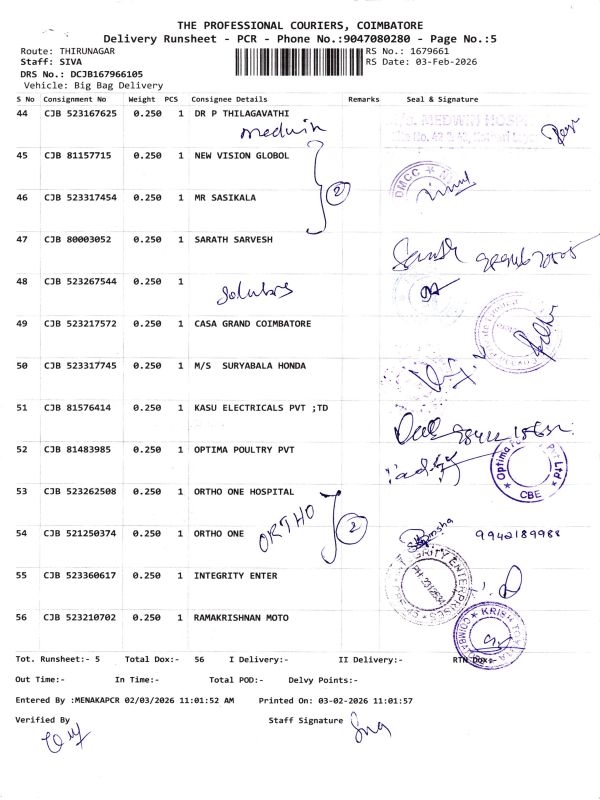 THE PROFESSIONAL COURIERS, COIMBATORE
Delivery Runsheet - PCR - Phone No.:9047080280 - Page No.:5
Route: THIRUNAGAR RS No.: 1679661
Staff: SIVA RS Date: 03-Feb-2026
DRS No.: DCJB167966105
Vehicle: Big Bag Delivery
S No Consignment No Weight PCS Consignee Details Remarks Seal & Signature
44 CJB 523167625 0.250 1 DR P THILAGAVATHI
medwin
45 CJB 81157715 0.250 1 NEW VISION GLOBOL
DMCC
46 CJB 523317454 0.250 1 MR SASIKALA
2
47 CJB 80003052 0.250 1 SARATH SARVESH
48 CJB 523267544 0.250 1
49 CJB 523217572 0.250 1 CASA GRAND COIMBATORE
50 CJB 523317745 0.250 1 M/S SURYABALA HONDA
51 CJB 81576414 0.250 1 KASU ELECTRICALS PVT ;TD
52 CJB 81483985 0.250 1 OPTIMA POULTRY PVT
Optima Pvt Ltd
CBE
53 CJB 523262508 0.250 1 ORTHO ONE HOSPITAL
ORTHO 2
54 CJB 521250374 0.250 1 ORTHO ONE
9942189988
55 CJB 523360617 0.250 1 INTEGRITY ENTER
56 CJB 523210702 0.250 1 RAMAKRISHNAN MOTO
Tot. Runsheet:- 5 Total Dox:- 56 I Delivery:- II Delivery:- RTN Dox:-
Out Time:- In Time:- Total POD:- Delvy Points:-
Entered By :MENAKAPCR 02/03/2026 11:01:52 AM Printed On: 03-02-2026 11:01:57
Verified By Staff Signature